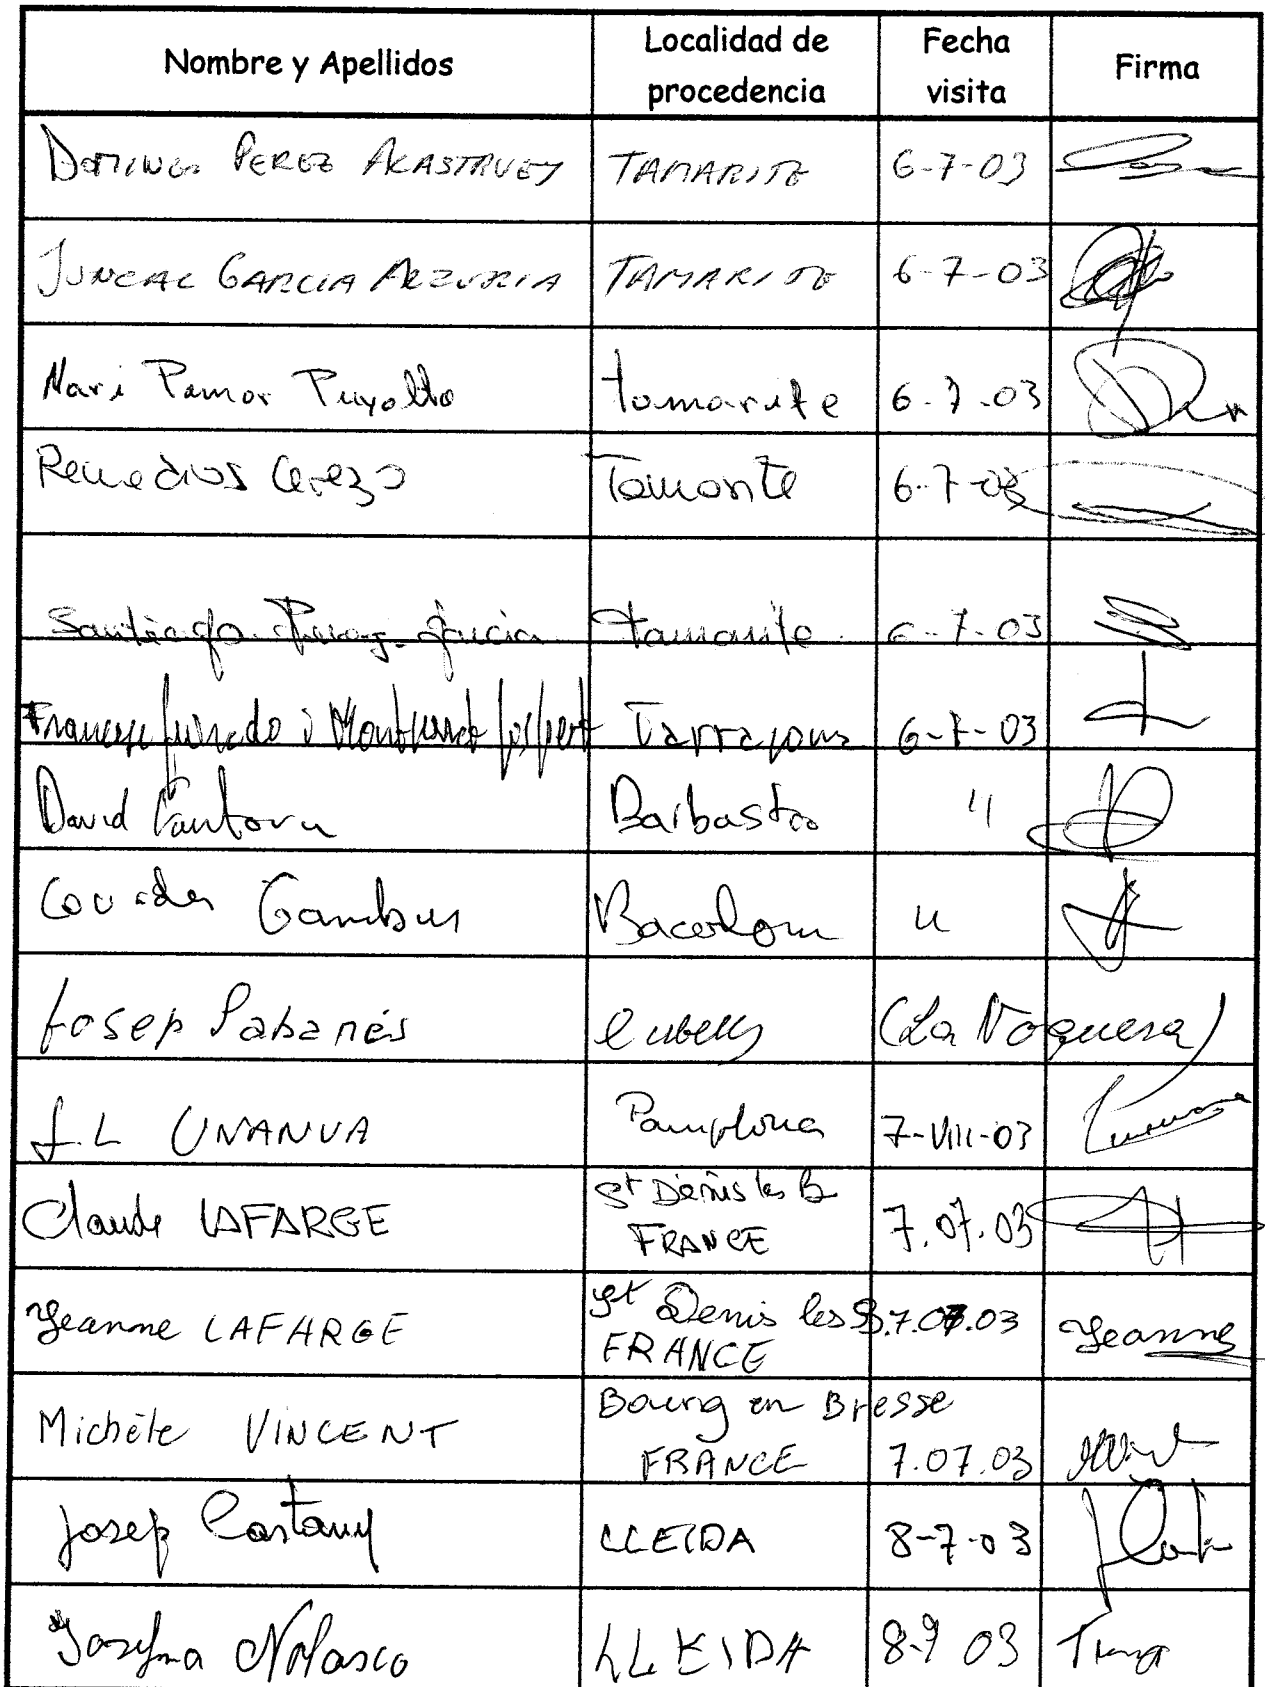 Nombre y Apellidos Localidad de procedencia Fecha visita Firma
DOMINGO PEREZ TAMARITE 6-7-03
JUNCAL GARCIA TAMARITE 6-7-03
Mari tamarite 6-7-03
Remedios Cerezo Tamarite 6-7-03
Santiago Garcia tamarite 6-7-03
Francesc i Tarragona 6-7-03
David Barbastro "
Gambus "
Josep Sabanés Cubells (La Noguera)
J.L UNANUA Pamplona 7-VIII-03
Claude LAFARGE St Denis les B 7.07.03
FRANCE
Jeanne LAFARGE St Denis les B. 7.07.03 Jeanne
FRANCE
Michèle VINCENT Bourg en Bresse
FRANCE 7.07.03
Josep Castany LLEIDA 8-7-03
Josefina Nolasco LLEIDA 03